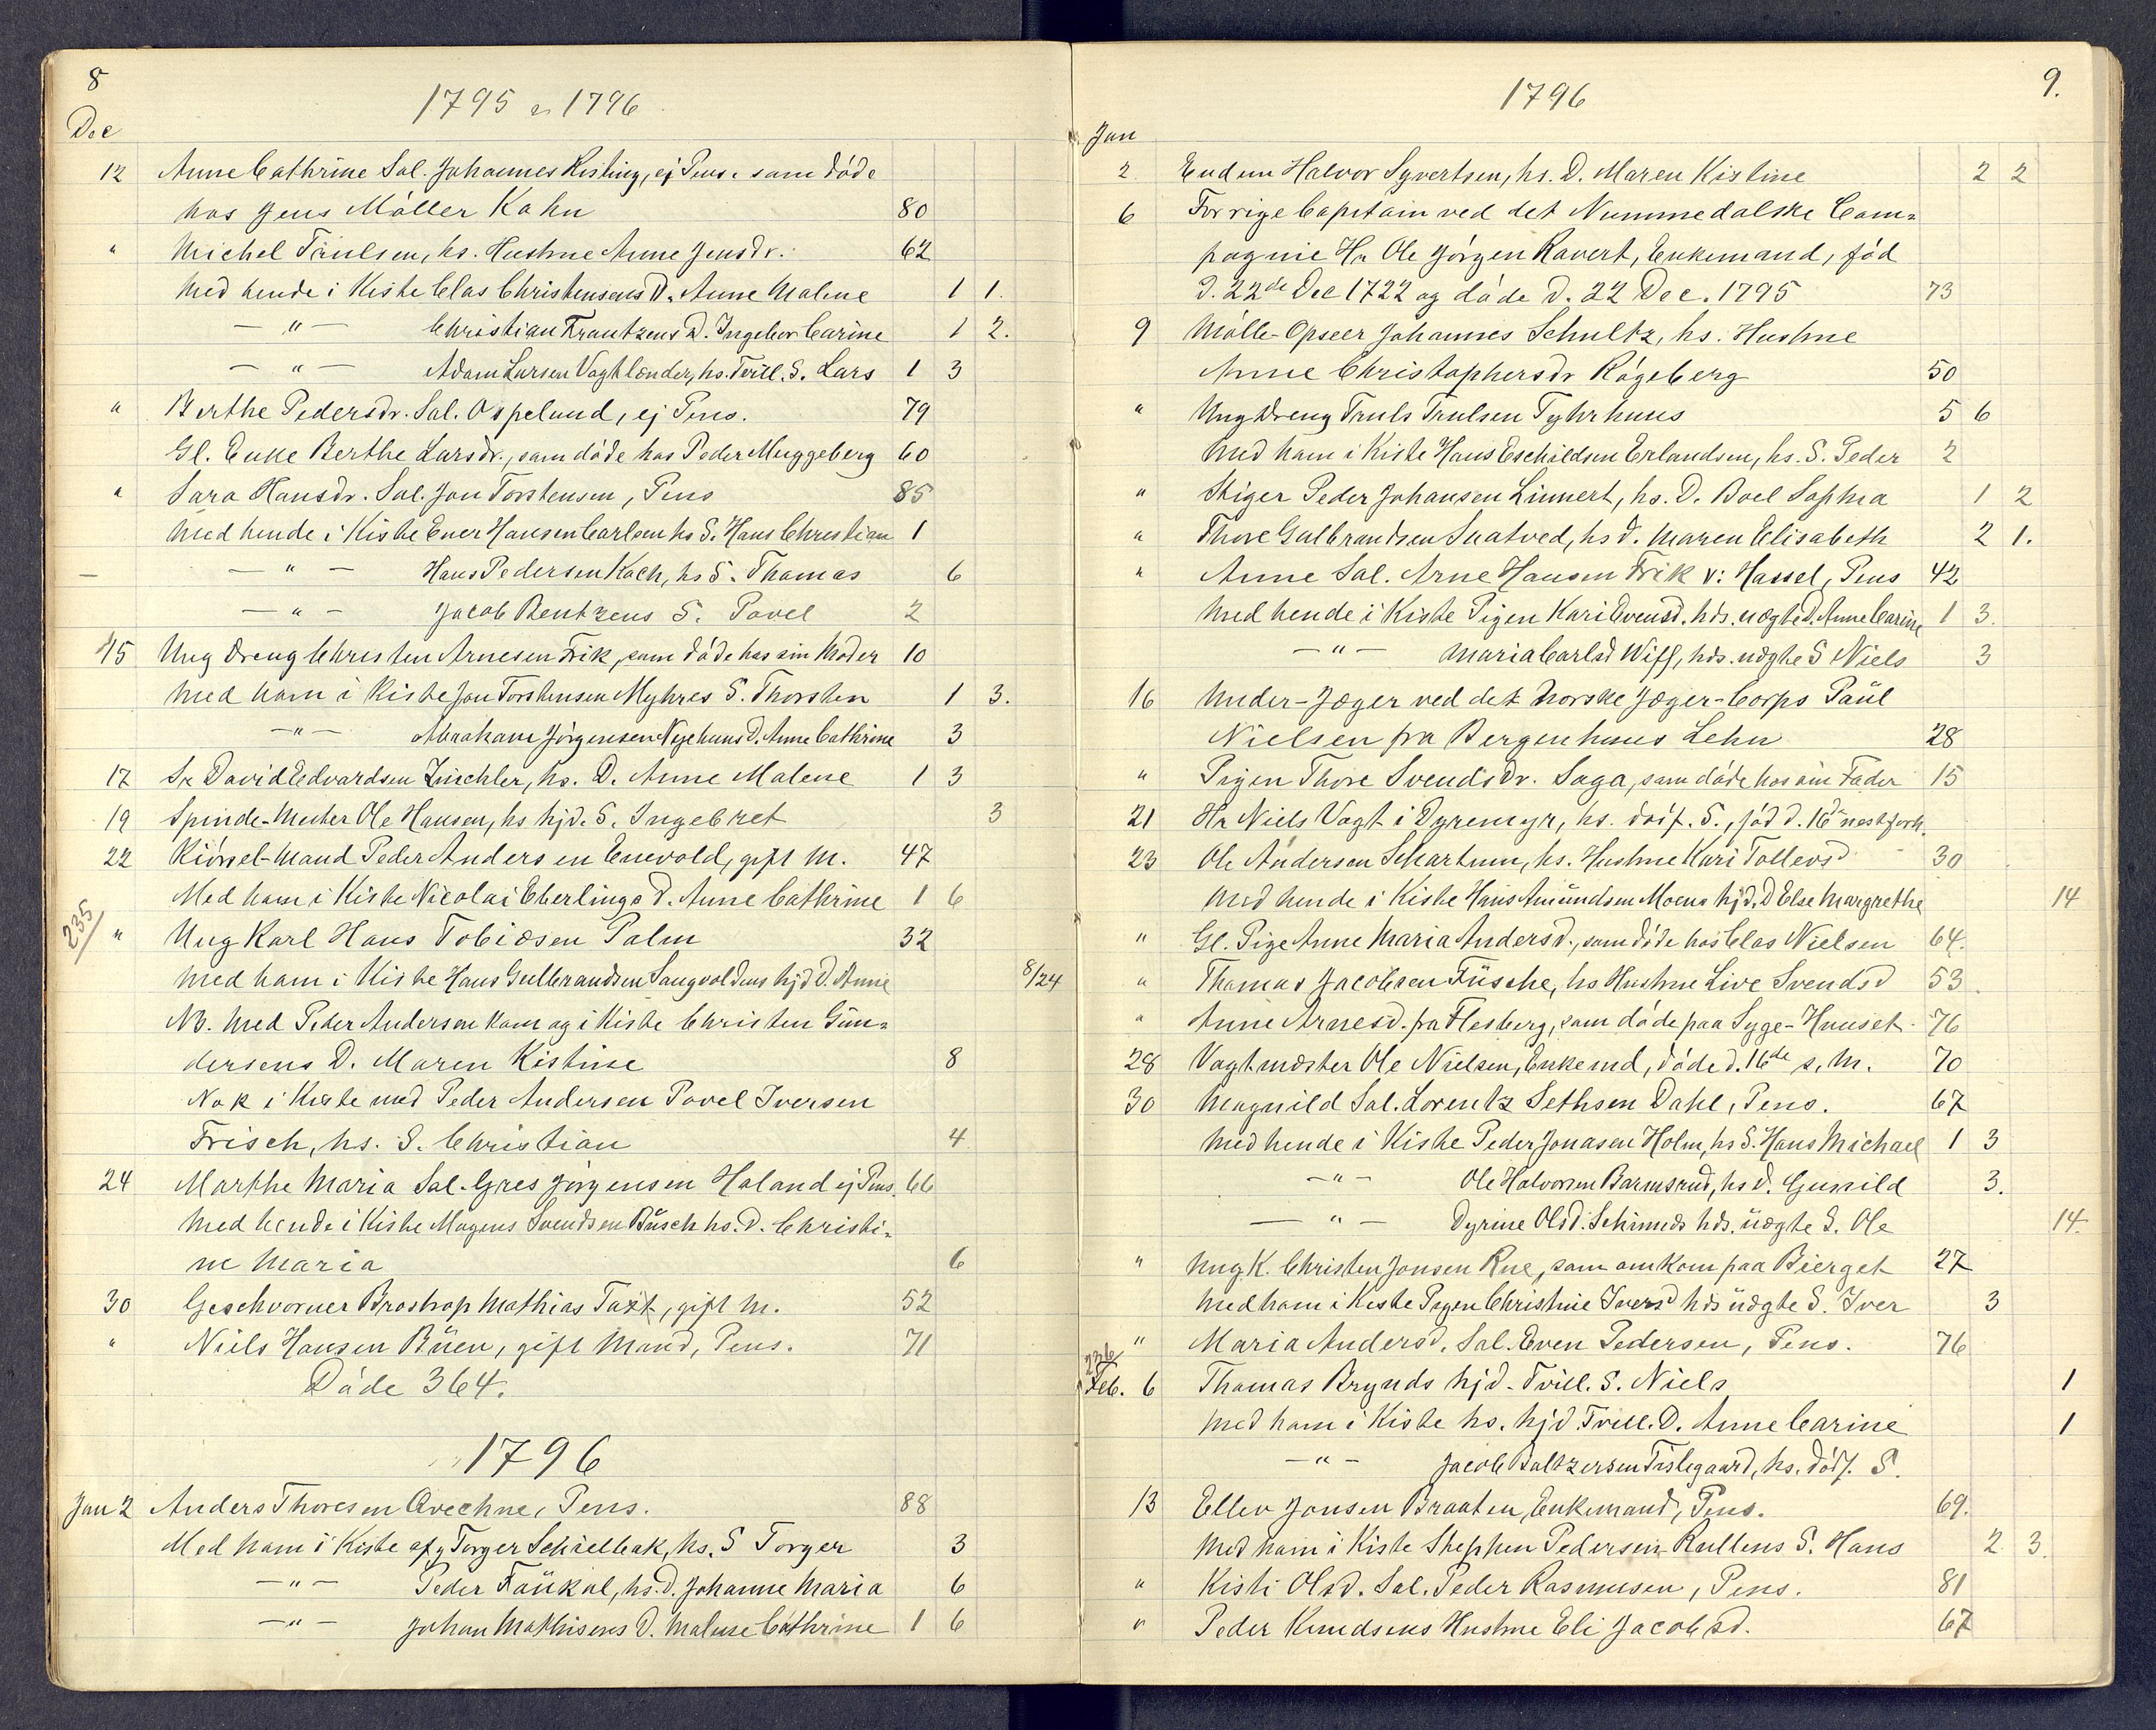 8
1795 & 1796
Dec
12 Anne Cathrine Sal. Johannes Kisling, ej Pens. som döde
hos Jens Möller Kahn 80
" Michel Paulsen, hs. Hustrue Anne Jensdr. 62
Med hende i Kiste Clas Christensens D. Anne Malene 1 1.
— " — Christian Frantzens D. Ingebor Carine 1 2.
— " — Adam Larsen Vogtlender, hs. Tvill. S. Lars 1 3
" Berthe Pedersdr. Sal. Ospelund, ej Pens. 79
Gl. Enke Berthe Larsdr., som döde hos Peder Muggeberg 60
" Sara Hansdr. Sal. Jon Torstensen, Pens 85
Med hende i Kiste Ener Hansen Carlsen hs S. Hans Christian 1
— " — Hans Pedersen Kach, hs S. Thomas 6
— " — Jacob Bentzens S. Povel 2
15 Ung Dreng Christen Arnesen Frik, som döde hos sin Moder 10
Med ham i Kiste Jon Torstensen Myhres S. Thorsten 1 3.
— " — Abraham Jörgensen Nyehuus D. Anne Cathrine 3
17 Sr. David Edvardsen Zinchler, hs. D. Anne Malene 1 3
19 Spinde-Mester Ole Hansen, hs hjd. S. Ingebret 3
22 Kiörsel-Mand Peder Andersen Enevold, gift M. 47
Med ham i Kiste Nicolai Eberlings D. Anne Cathrine 1 6
235/ " Ung Karl Hans Tobiæsen Palm 32
Med ham i Kiste Hans Gulbrandsen Saugvoldens hjd D. Anne 8/24
NB. Med Peder Andersen kom og i Kiste Christen Gun=
dersens D. Maren Kistine 8
Nok i Kiste med Peder Andersen Povel Iversen
Frisch, hs. S. Christian 4
24 Marthe Maria Sal. Gres Jörgensen Haland ej Pens. 66
Med hende i Kiste Mogens Svendsen Büsch hs. D. Christi=
ne Maria 6
30 Geschvorner Brostrop Mathias Taxt, gift M. 52
" Niels Hansen Büen, gift Mand, Pens. 71
Döde 364.
1796
Jan 2 Anders Thoresen Qvechne, Pens. 88
Med ham i Kiste afg Torger Schielbak, hs. S Torger 3
— " — Peder Faükal, hs. D. Johanne Maria 6
— " — Johan Mathisens D. Malene Cathrine 1 6
9.
1796
Jan
2 Endnu Halvor Syvertsen, hs. D. Maren Kistine 2 2
6 Forrige Capitain ved det Nummedalske Com=
pagnie Hr. Ole Jörgen Ravert, Enkemand, föd
D. 22de Dec 1722 og döde D. 22 Dec. 1795 73
9 Mölle-Opseer Johannes Schultz, hs. Hustrue
Anne Christophersdr Rögeberg 50
" Ung Dreng Truls Trulsen Tyhrhuus 5 6
Med ham i Kiste Hans Eschildsen Erlandsen, hs. S. Peder 2
" Stiger Peder Johansen Linnert, hs. D. Boel Sophia 1 2
" Thore Gulbrandsen Snatved, hs D. Maren Elisabeth 2 1.
" Anne Sal. Arne Hansen Frik v: Hassel, Pens 42
Med hende i Kiste Pigen Kari Evensd. hds. uægte D. Anne Carine 1 3.
— " — Maria Carlsd Wiff, hds. uægte S Niels 3
16 Under-Jæger ved det Norske Jæger-Corps Paül
Nielsen fra Bergenhuus Lehn 28
" Pigen Thore Svendsdr. Saga, som döde hos sin Fader 15
21 Hr Niels Vogt i Dyremyr, hs. döpf. S., föd d. 16de næstforh.
23 Ole Andersen Schartum, hs. Hustrue Kari Tollevsd 30
Med hende i Kiste Hans Amundsen Moens hjd. D Else Margrethe 14
" Gl. Pige Anne Maria Andersd., som döde hos Clas Nielsen 64.
" Thomas Jacobsen Füsche, hs Hustrue Live Svendsd 53
" Anne Arnesd. fra Flesberg, som döde paa Syge-Huuset 76
28 Vagtmæster Ole Nielsen, Enkemd, döde d. 16de s. M. 70
30 Magnild Sal. Lorentz Sethsen Dahl, Pens. 67
Med hende i Kiste Peder Jonasen Holm, hs S. Hans Michael 1 3
— " — Ole Halvorsen Barmsrud, hs D. Gunild 3.
— " — Dyrine Olsd. Schinnds hds. uægte S. Ole 14.
" Ung K. Christen Jonsen Rue, som omkom paa Bierget 27
Med ham i Kiste Pigen Christine Iversd hds uægte S. Iver 3
" Maria Andersd. Sal. Even Pedersen, Pens. 76
236
Feb. 6 Thomas Brynds hjd. Tvill. S. Niels 1
Med ham i Kiste hs. hjd. Tvill. D. Anne Carine 1
— " — Jacob Baltzersen Tislegaard, hs. dödf. S.
13 Ellev Jonsen Braaten, Enkemand, Pens. 69.
Med ham i Kiste Stephen Pedersen Rullens S. Hans 2 3.
" Kisti Olsd. Sal. Peder Rasmusen, Pens. 81
" Peder Knudsens Hustrue Eli Jacobsd. 67